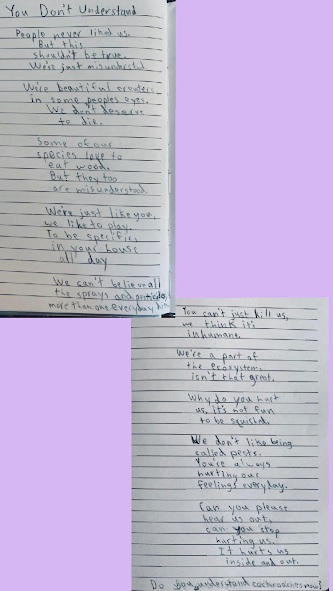 You Don't Understand
People never liked us.
But this
shouldn't be true.
We're just misunderstood
We're beautiful creatures
in some peoples eyes.
We don't deserve
to die.
Some of our
species love to
eat wood.
But they too
are misunderstood
We're just like you,
we like to play.
To be specific,
in your house
all day
We can't believe all
the sprays and pesticides,
more than one everyday
You can't just kill us,
we think it's
inhumane.
We're a part of
the ecosystem,
isn't that great.
Why do you hurt
us, it's not fun
to be squishd.
We don't like being
called pests.
You're always
hurting our
feelings everyday.
Can you please
hear us out,
can you stop
hurting us.
It hurts us
inside and out.
Do you understand cockroaches now?